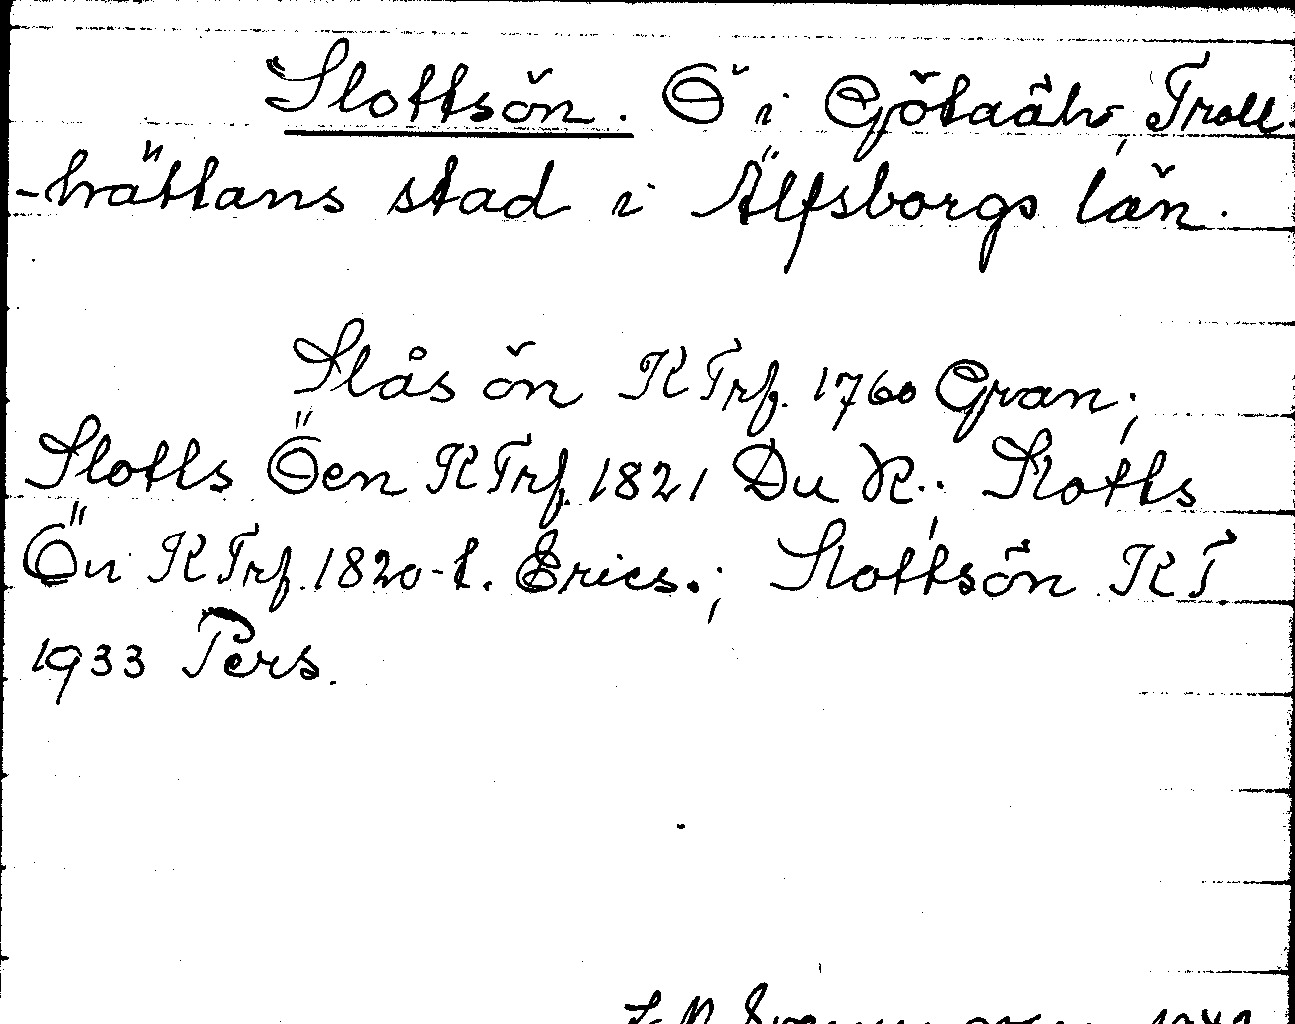 Slottsön. Ö i Götaälv, Troll-
-hättans stad i Älfsborgs län.
Slås ön K Trf. 1760 Gran;
Slotts Öen K Trf. 1821 Du R.; Slotts
Ön K Trf. 1820-t. Erics.; Slottsön K T.
1933 Pers.